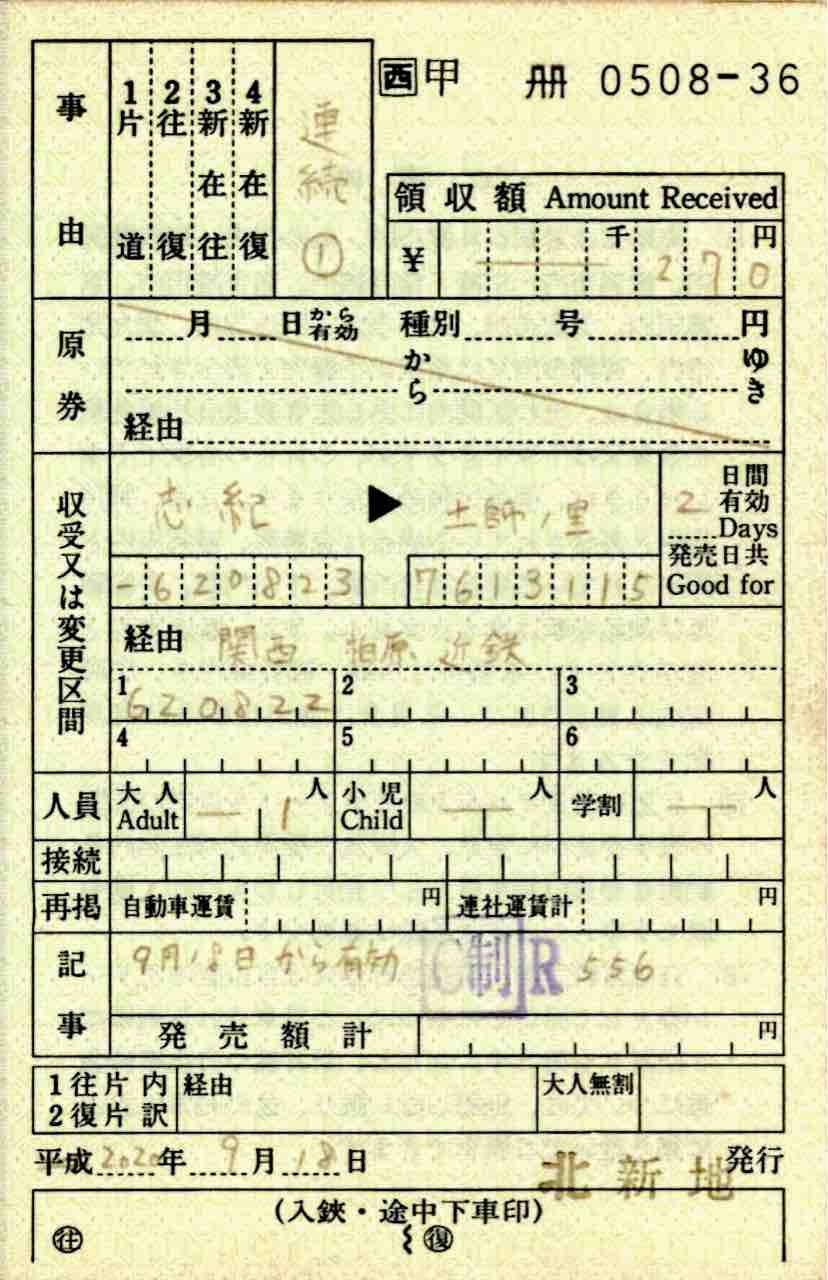 ㊄甲 冊 0508-36
事由
1片道
2往復
3新在往
4新在復
連続①
領収額 Amount Received
¥ 千 円
270
原券
月 日から有効 種別 号 円
から ゆき
経由
収受又は変更区間
志紀 ▶ 土師ノ里
2 日間有効
Days
発売日共
Good for
-620823 7613115
経由 関西 柏原 近鉄
1 620822 2 3
4 5 6
人員 大人 Adult - 1 人 小児 Child — 人 学割 — 人
接続
再掲 自動車運賃 円 連社運賃計 円
記事
9月18日から有効 C制 R 556
発売額計 円
1往片内 経由 大人無割
2復片訳
平成2020年9月18日 北新地 発行
(入鋏・途中下車印)
往 復